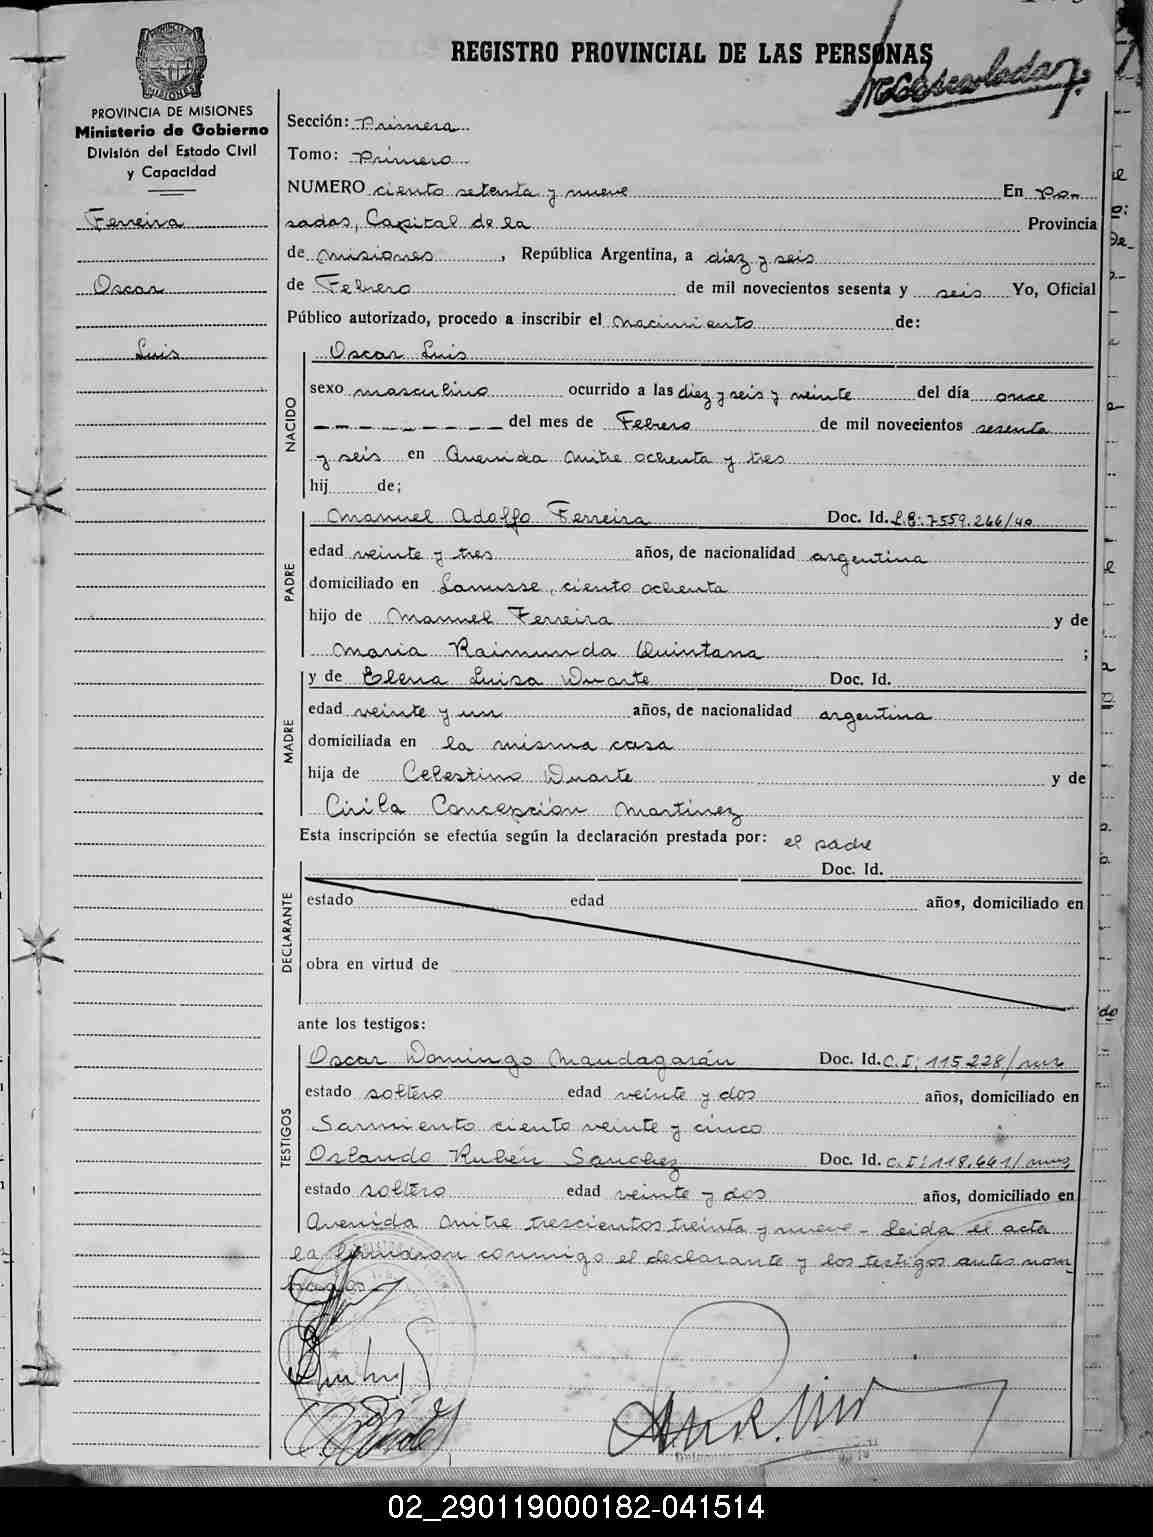 REGISTRO PROVINCIAL DE LAS PERSONAS
PROVINCIA DE MISIONES
Ministerio de Gobierno
División del Estado Civil
y Capacidad
Ferreira
Oscar
Luis
Sección: Primera
Tomo: Primero
NUMERO ciento setenta y nueve En Po-
sadas, Capital de la Provincia
de Misiones, República Argentina, a diez y seis
de Febrero de mil novecientos sesenta y seis Yo, Oficial
Público autorizado, procedo a inscribir el nacimiento de:
NACIDO
Oscar Luis
sexo masculino ocurrido a las diez y seis y veinte del día once
del mes de Febrero de mil novecientos sesenta
y seis en Avenida Mitre ochenta y tres
hij de;
PADRE
Manuel Adolfo Ferreira Doc. Id. L.E: 7559.266/40
edad veinte y tres años, de nacionalidad argentina
domiciliado en Lanusse, ciento ochenta
hijo de Manuel Ferreira y de
Maria Raimunda Quintana ;
MADRE
y de Elena Luisa Duarte Doc. Id.
edad veinte y un años, de nacionalidad argentina
domiciliada en la misma casa
hija de Celestino Duarte y de
Cirila Concepción Martinez
Esta inscripción se efectúa según la declaración prestada por: el padre
DECLARANTE
Doc. Id.
estado edad años, domiciliado en
obra en virtud de
ante los testigos:
TESTIGOS
Oscar Domingo Mandagarán Doc. Id. C.I: 115.228/mnes
estado soltero edad veinte y dos años, domiciliado en
Sarmiento ciento veinte y cinco
Orlando Rubén Sanchez Doc. Id. C.I: 118.661/mnes
estado soltero edad veinte y dos años, domiciliado en
Avenida Mitre trescientos treinta y nueve - Leida el acta
la firmaron conmigo el declarante y los testigos antes nom-
brados
02_290119000182-041514